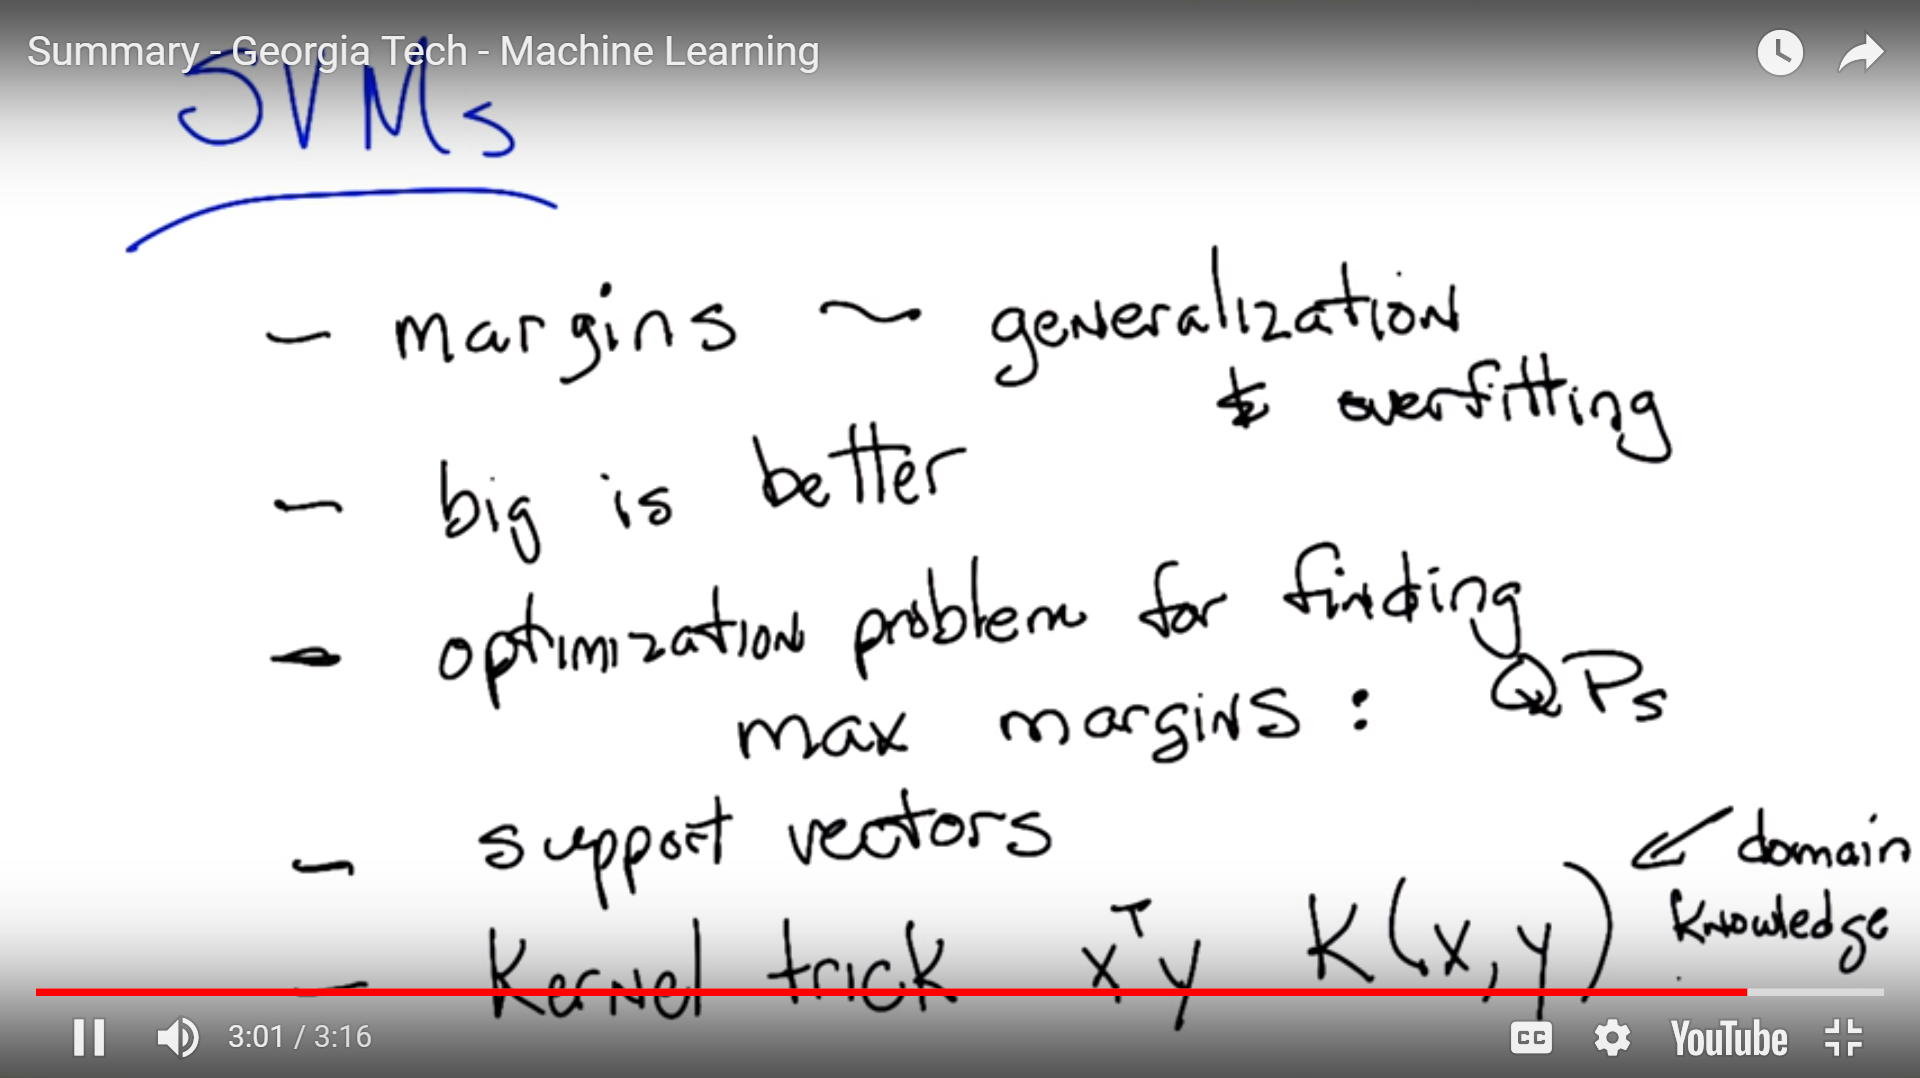 Summary - Georgia Tech - Machine Learning
SVMs
- margins ~ generalization
& overfitting
- big is better
- optimization problem for finding
max margins : QPs
- support vectors
domain
knowledge
- Kernel trick xᵀy K(x,y)
3:01 / 3:16
CC
YouTube